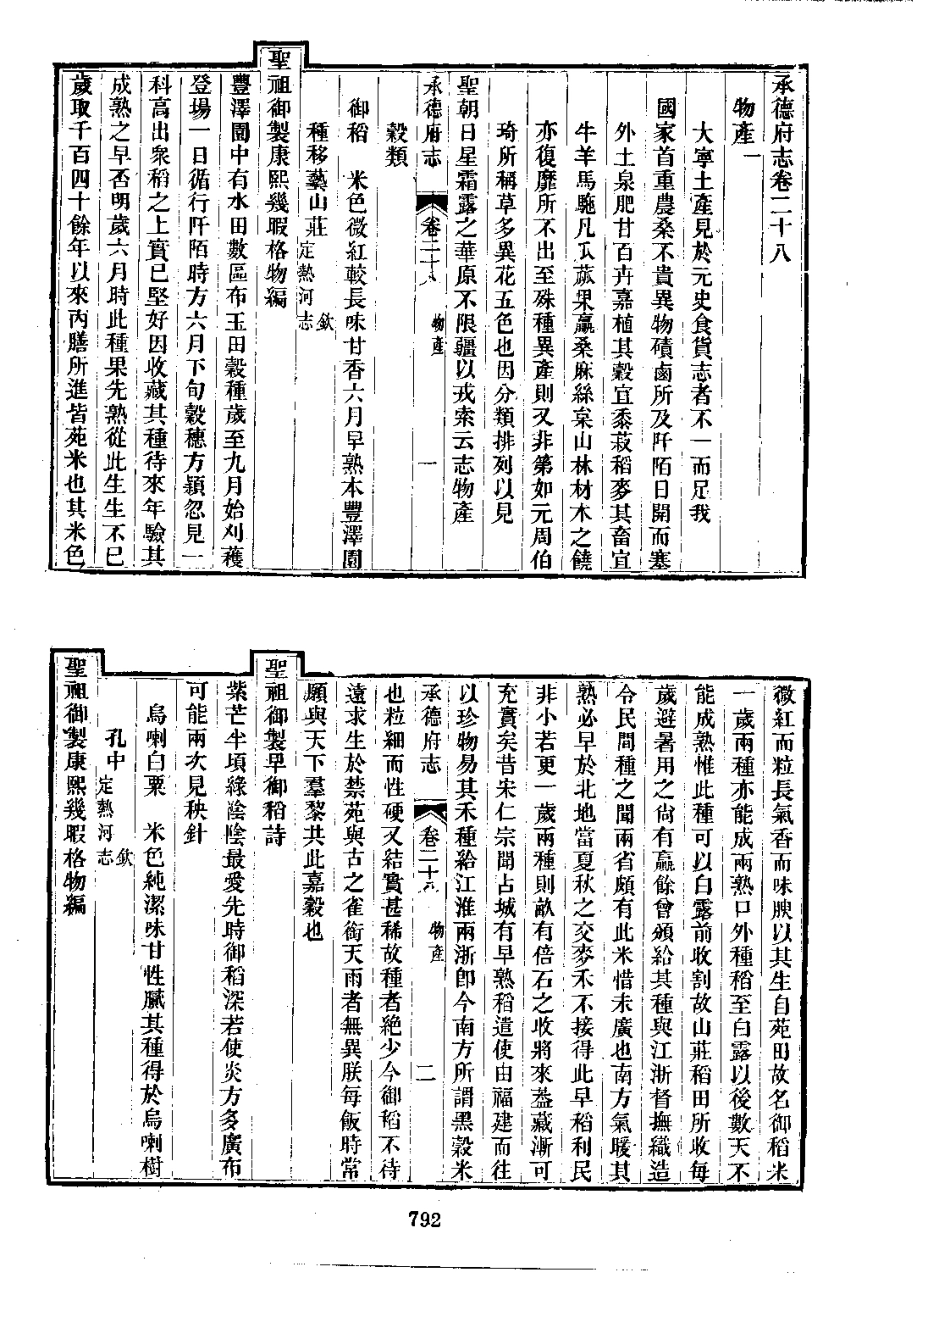 承德府志卷二十八
物產一
大寧土產見於元史食貨志者不一而足我
國家首重農桑不貴異物磧鹵所及阡陌日開而塞
外土泉肥甘百卉嘉植其穀宜黍菽稻麥其畜宜
牛羊馬駞凡瓜蓏果蠃桑麻絲枲山林材木之饒
亦復靡所不出至殊種異產則又非第如元周伯
琦所稱草多異花五色也因分類排列以見
聖朝日星霜露之華原不限疆以戎索云志物產
承德府志 卷二十八 物產 一
穀類
御稻 米色微紅較長味甘香六月早熟本豐澤園
種移藝山莊欽定熱河志
聖祖御製康熙幾暇格物編
豐澤園中有水田數區布玉田穀種歲至九月始刈穫
登場一日循行阡陌時方六月下旬穀穗方穎忽見一
科高出衆稻之上實已堅好因收藏其種待來年驗其
成熟之早否明歲六月時此種果先熟從此生生不已
歲取千百四十餘年以來內膳所進皆苑米也其米色
微紅而粒長氣香而味腴以其生自苑田故名御稻米
一歲兩種亦能成兩熟口外種稻至白露以後數天不
能成熟惟此種可以白露前收割故山莊稻田所收每
歲避暑用之尙有贏餘曾頒給其種與江浙督撫織造
令民間種之聞兩省頗有此米惜未廣也南方氣暖其
熟必早於北地當夏秋之交麥禾不接得此早稻利民
非小若更一歲兩種則畝有倍石之收將來葢藏漸可
充實矣昔宋仁宗聞占城有早熟稻遣使由福建而往
以珍物易其禾種給江淮兩浙卽今南方所謂黑穀米
承德府志 卷二十八 物產 二
也粒細而性硬又結實甚稀故種者絕少今御稻不待
遠求生於禁苑與古之雀銜天雨者無異朕每飯時常
願與天下羣黎共此嘉穀也
聖祖御製早御稻詩
紫芒半頃綠陰陰最愛先時御稻深若使炎方多廣布
可能兩次見秧針
烏喇白粟 米色純潔味甘性膩其種得於烏喇樹
孔中欽定熱河志
聖祖御製康熙幾暇格物編
792